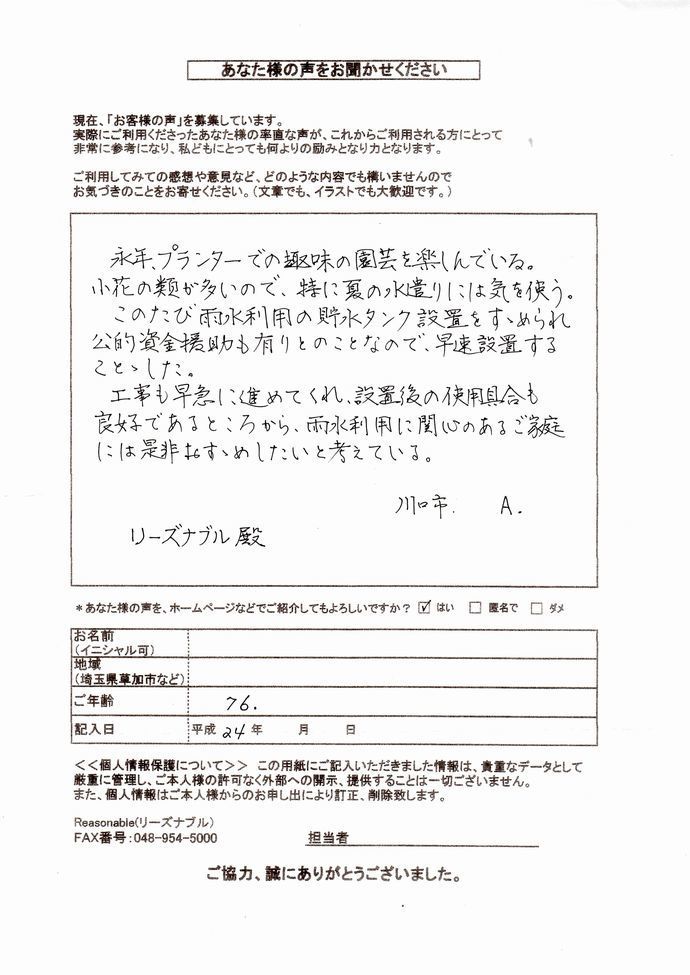 あなた様の声をお聞かせください
現在、「お客様の声」を募集しています。
実際にご利用くださったあなた様の率直な声が、これからご利用される方にとって
非常に参考になり、私どもにとっても何よりの励みとなり力となります。
ご利用してみての感想や意見など、どのような内容でも構いませんので
お気づきのことをお寄せください。（文章でも、イラストでも大歓迎です。）
永年、プランターでの趣味の園芸を楽しんでいる。
小花の類が多いので、特に夏の水遣りには気を使う。
このたび雨水利用の貯水タンク設置をすゝめられ
公的資金援助も有りとのことなので、早速設置する
ことゝした。
工事も早急に進めてくれ、設置後の使用具合も
良好であるところから、雨水利用に関心のあるご家庭
には是非おすゝめしたいと考えている。
川口市. A.
リーズナブル殿
＊あなた様の声を、ホームページなどでご紹介してもよろしいですか？ ☑ はい □ 匿名で □ ダメ
お名前
（イニシャル可）
地域
（埼玉県草加市など）
ご年齢 76.
記入日 平成 24 年 月 日
＜＜個人情報保護について＞＞ この用紙にご記入いただきました情報は、貴重なデータとして
厳重に管理し、ご本人様の許可なく外部への開示、提供することは一切ございません。
また、個人情報はご本人様からのお申し出により訂正、削除致します。
Reasonable（リーズナブル）
FAX番号：048-954-5000 担当者
ご協力、誠にありがとうございました。